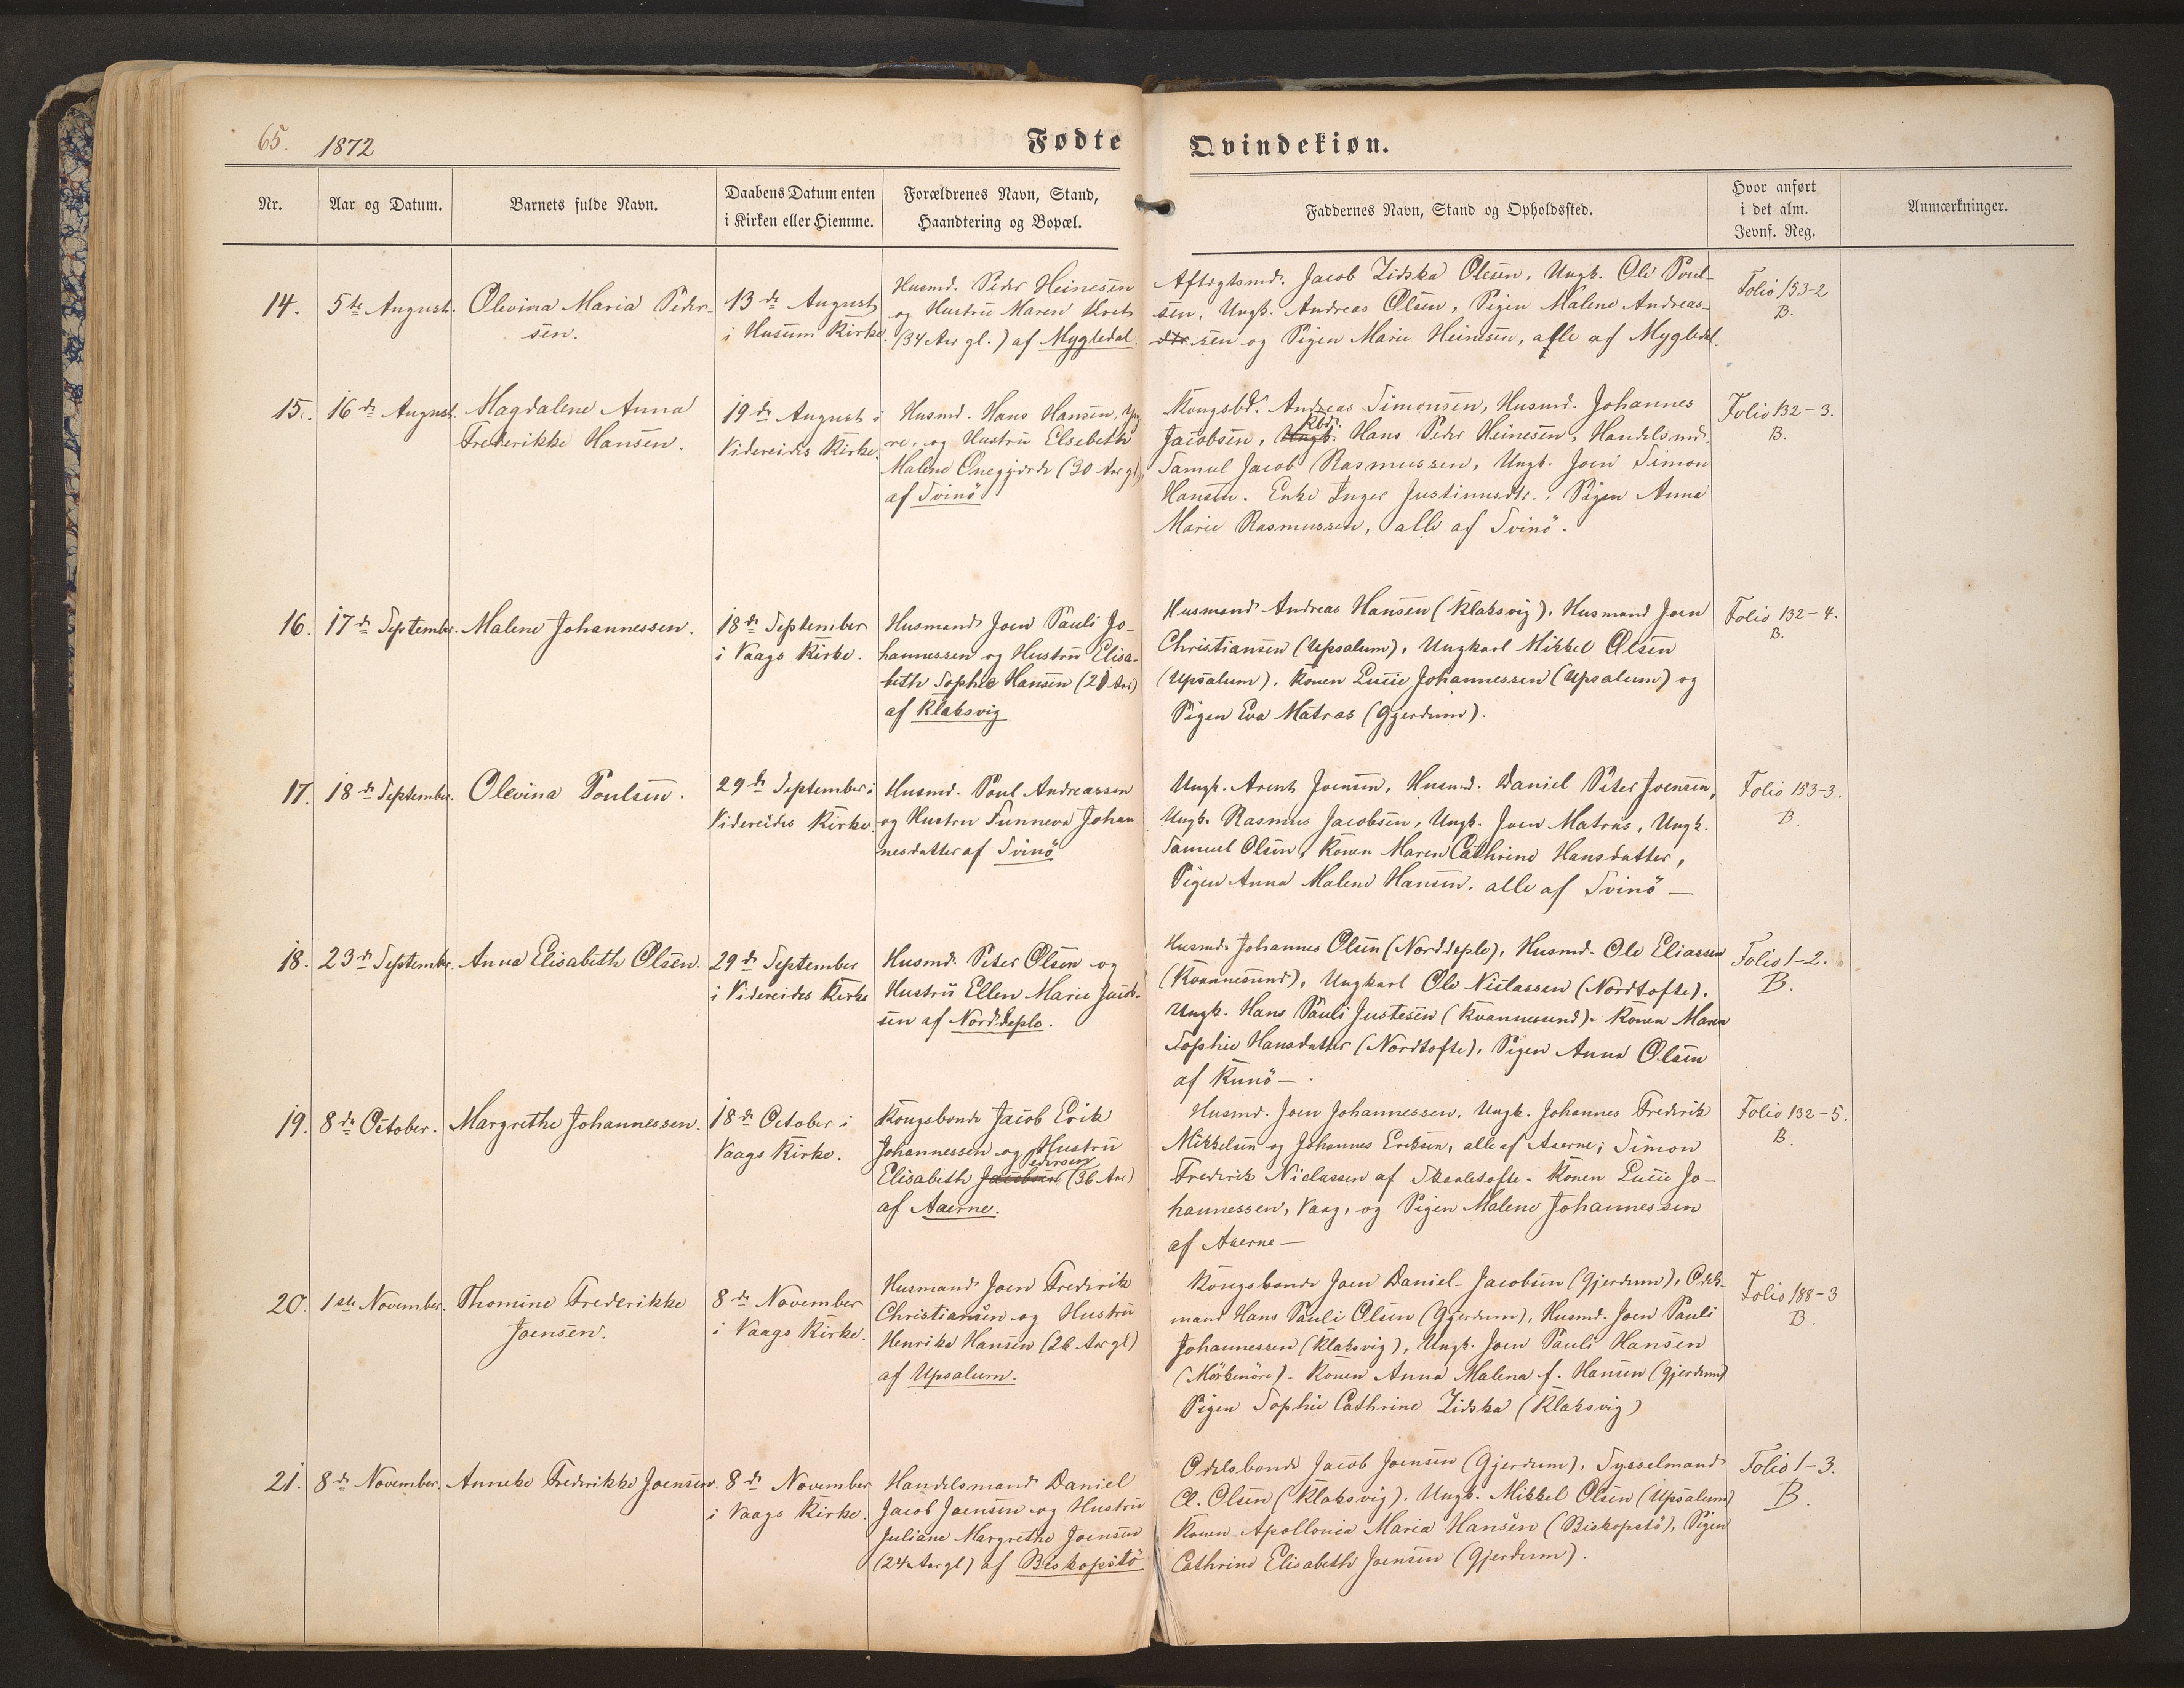 65. 1872
Fødte Qvindekiøn.
Nr.
Aar og Datum.
Barnets fulde Navn.
Daabens Datum enten
i Kirken eller Hiemme.
Forældrenes Navn, Stand,
Haandtering og Bopæl.
Faddernes Navn, Stand og Opholdssted.
Hvor anført
i det alm.
Jevnf. Reg.
Anmærkninger.
14.
5te August.
Olevina Maria Peder-
sen.
13de August
i Husum Kirke.
Husmd. Peder Heinesen
og Hustru Maren
(34 Aar gl.) af Mygledal.
Aftægtsmd. Jacob Zidska Olesen, Ungk. Ole Poul-
sen, Ungk. Andreas Olsen, Pigen Malene Andreas-
sen og Pigen Marie Heinesen, alle af Mygledal.
Folio 153-2
B.
15.
16de August.
Magdalene Anna
Frederikke Hansen.
19de August i
Videreides Kirke.
Husmd. Hans Hansen, Yng
re, og Hustru Elsebeth
Malene (30 Aar gl.)
af Svinö
Kongsbd. Andreas Simonsen, Husmd. Johannes
Kbd.
Jacobsen, Ungk. Hans Peder Heinesen, Handelsmd.
Samuel Jacob Rasmussen, Ungk. Joen Simon
Hansen. Enke Inger Justinusdtr., Pigen Anna
Marie Rasmussen, alle af Svinö.
Folio 132-3.
B.
16.
17de September.
Malene Johannessen.
18de September
i Vaags Kirke.
Husmand Joen Pauli Jo-
hannessen og Hustru Elisa-
beth Sophie Hansen (21 Aar)
af Klaksvig
Husmand Andreas Hansen (Klaksvig), Husmand Joen
Christiansen (Upsalum), Ungkarl Mikkel Olsen
(Upsalum), Konen Lucie Johannessen (Upsalum) og
Pigen Eva Matras (Gjerdum).
Folio 132-4.
B.
17.
18de September.
Olevina Poulsen.
29de September i
Videreides Kirke.
Husmd. Poul Andreassen
og Hustru Sunneva Johan
nesdatter af Svinö
Ungk. Arent Joensen, Husmd. Daniel Peter Joensen,
Ungk. Rasmus Jacobsen, Ungk. Joen Matras, Ungk.
Samuel Olsen, Konen Maren Cathrine Hansdatter,
Pigen Anna Malene Hansen. alle af Svinö —
Folio 153-3.
B.
18.
23de September.
Anna Elisabeth Olsen.
29de September
i Videreides Kirke
Husmd. Peter Olsen og
Hustru Ellen Marie Jacob-
sen af Norddeple.
Husmd. Johannes Olsen (Norddeple), Husmd. Ole Eliassen
(Kvannesund), Ungkarl Ole Niclassen (Nordtofte).
Ungk. Hans Pauli Justesen (Kvannesund). Konen Maren
Sophie Hansdatter (Nordtofte), Pigen Anna Olsen
af Kunö —
Folio 1-2.
B.
19.
8de October.
Margrethe Johannessen.
18de October i
Vaags Kirke.
Kongsbonde Jacob Erik
Johannessen og Hustru
Elisabeth Jacobsen (36 Aar)
af Aaerne.
Husmd. Joen Johannessen, Ungk. Johannes Frederik
Mikkelsen og Johannes Eriksen, alle af Aaerne; Simon
Frederik Niclassen af Skaaletofte. Konen Lucie Jo-
hannessen, Vaag, og Pigen Malene Johannessen
af Aaerne —
Folio 132-5.
B.
20.
1ste November.
Thomine Frederikke
Joensen.
8de November
i Vaags Kirke.
Husmand Joen Frederik
Christiansen og Hustru
Henrika Hansen (26 Aar gl)
af Upsalum.
Kongsbonde Joen Daniel Jacobsen (Gjerdum), Odels-
mand Hans Pauli Olsen (Gjerdum), Husmd. Joen Pauli
Johannessen (Klaksvig), Ungk. Joen Pauli Hansen
(Mörkenöre). Konen Anna Malena f. Hansen (Gjerdum)
Pigen Sophie Cathrine Zidska (Klaksvig)
Folio 188-3
B.
21.
8de November.
Anneke Frederikke Joensen.
8de November
i Vaags Kirke.
Handelsmand Daniel
Jacob Joensen og Hustru
Juliane Margrethe Joensen
(24 Aar gl) af Biskopstö
Odelsbonde Jacob Joensen (Gjerdum), Sysselmand
Cl. Olsen (Klaksvig), Ungk. Mikkel Olsen (Upsalum)
Konen Apollonia Maria Hansen (Biskopstö), Pigen
Cathrine Elisabeth Joensen (Gjerdum).
Folio 1-3.
B.